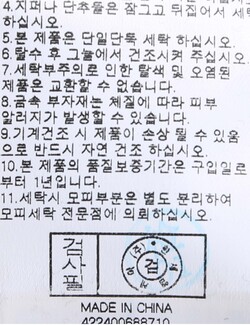 4.지퍼나 단추들은 잠그고 뒤집어서 세탁
하십시오.
5.본 제품은 단일단독 세탁 하십시오.
6.탈수 후 그늘에서 건조시켜 주십시오.
7.세탁부주의로 인한 탈색 및 오염된
제품은 교환할 수 없습니다.
8.금속 부자재는 체질에 따라 피부
알러지가 발생할 수 있습니다.
9.기계건조 시 제품이 손상 될 수 있음
으로 반드시 자연 건조 하십시오.
10.본 제품의 품질보증기간은 구입일로
부터 1년입니다.
11.세탁시 모피부분은 별도 분리하여
모피세탁 전문점에 의뢰하십시오.
검사필
(주)
검
MADE IN CHINA
422400688710